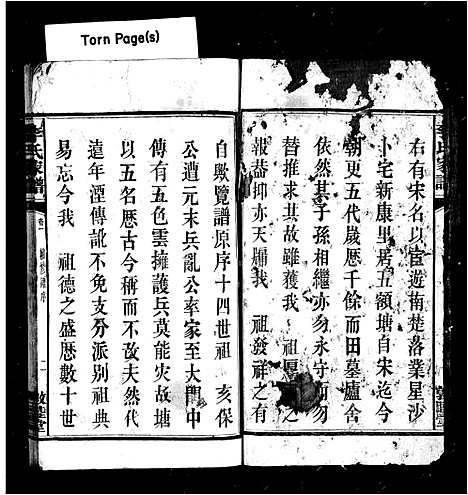 Torn Page(s)
右有宋名以宦遊南楚落業星沙
卜宅新康里居五領塘自宋迄今
朝更五代歲歷千餘而田墓廬舍
依然其子孫相繼亦勿永守而勿
替推求其故雖獲我 祖厚
報蓋抑亦天賜我 祖發祥之有
自歟覽譜原序十四世祖 亥保
公遭元末兵亂公率家至大門中
傳有五色雲擁護兵莫能灾故塘
以五名歷古今稱而不改夫然代
遠年湮傳訛不免支分派別祖典
易忘今我 祖德之盛歷數十世
李氏家譜
卷一
二
敦睦堂